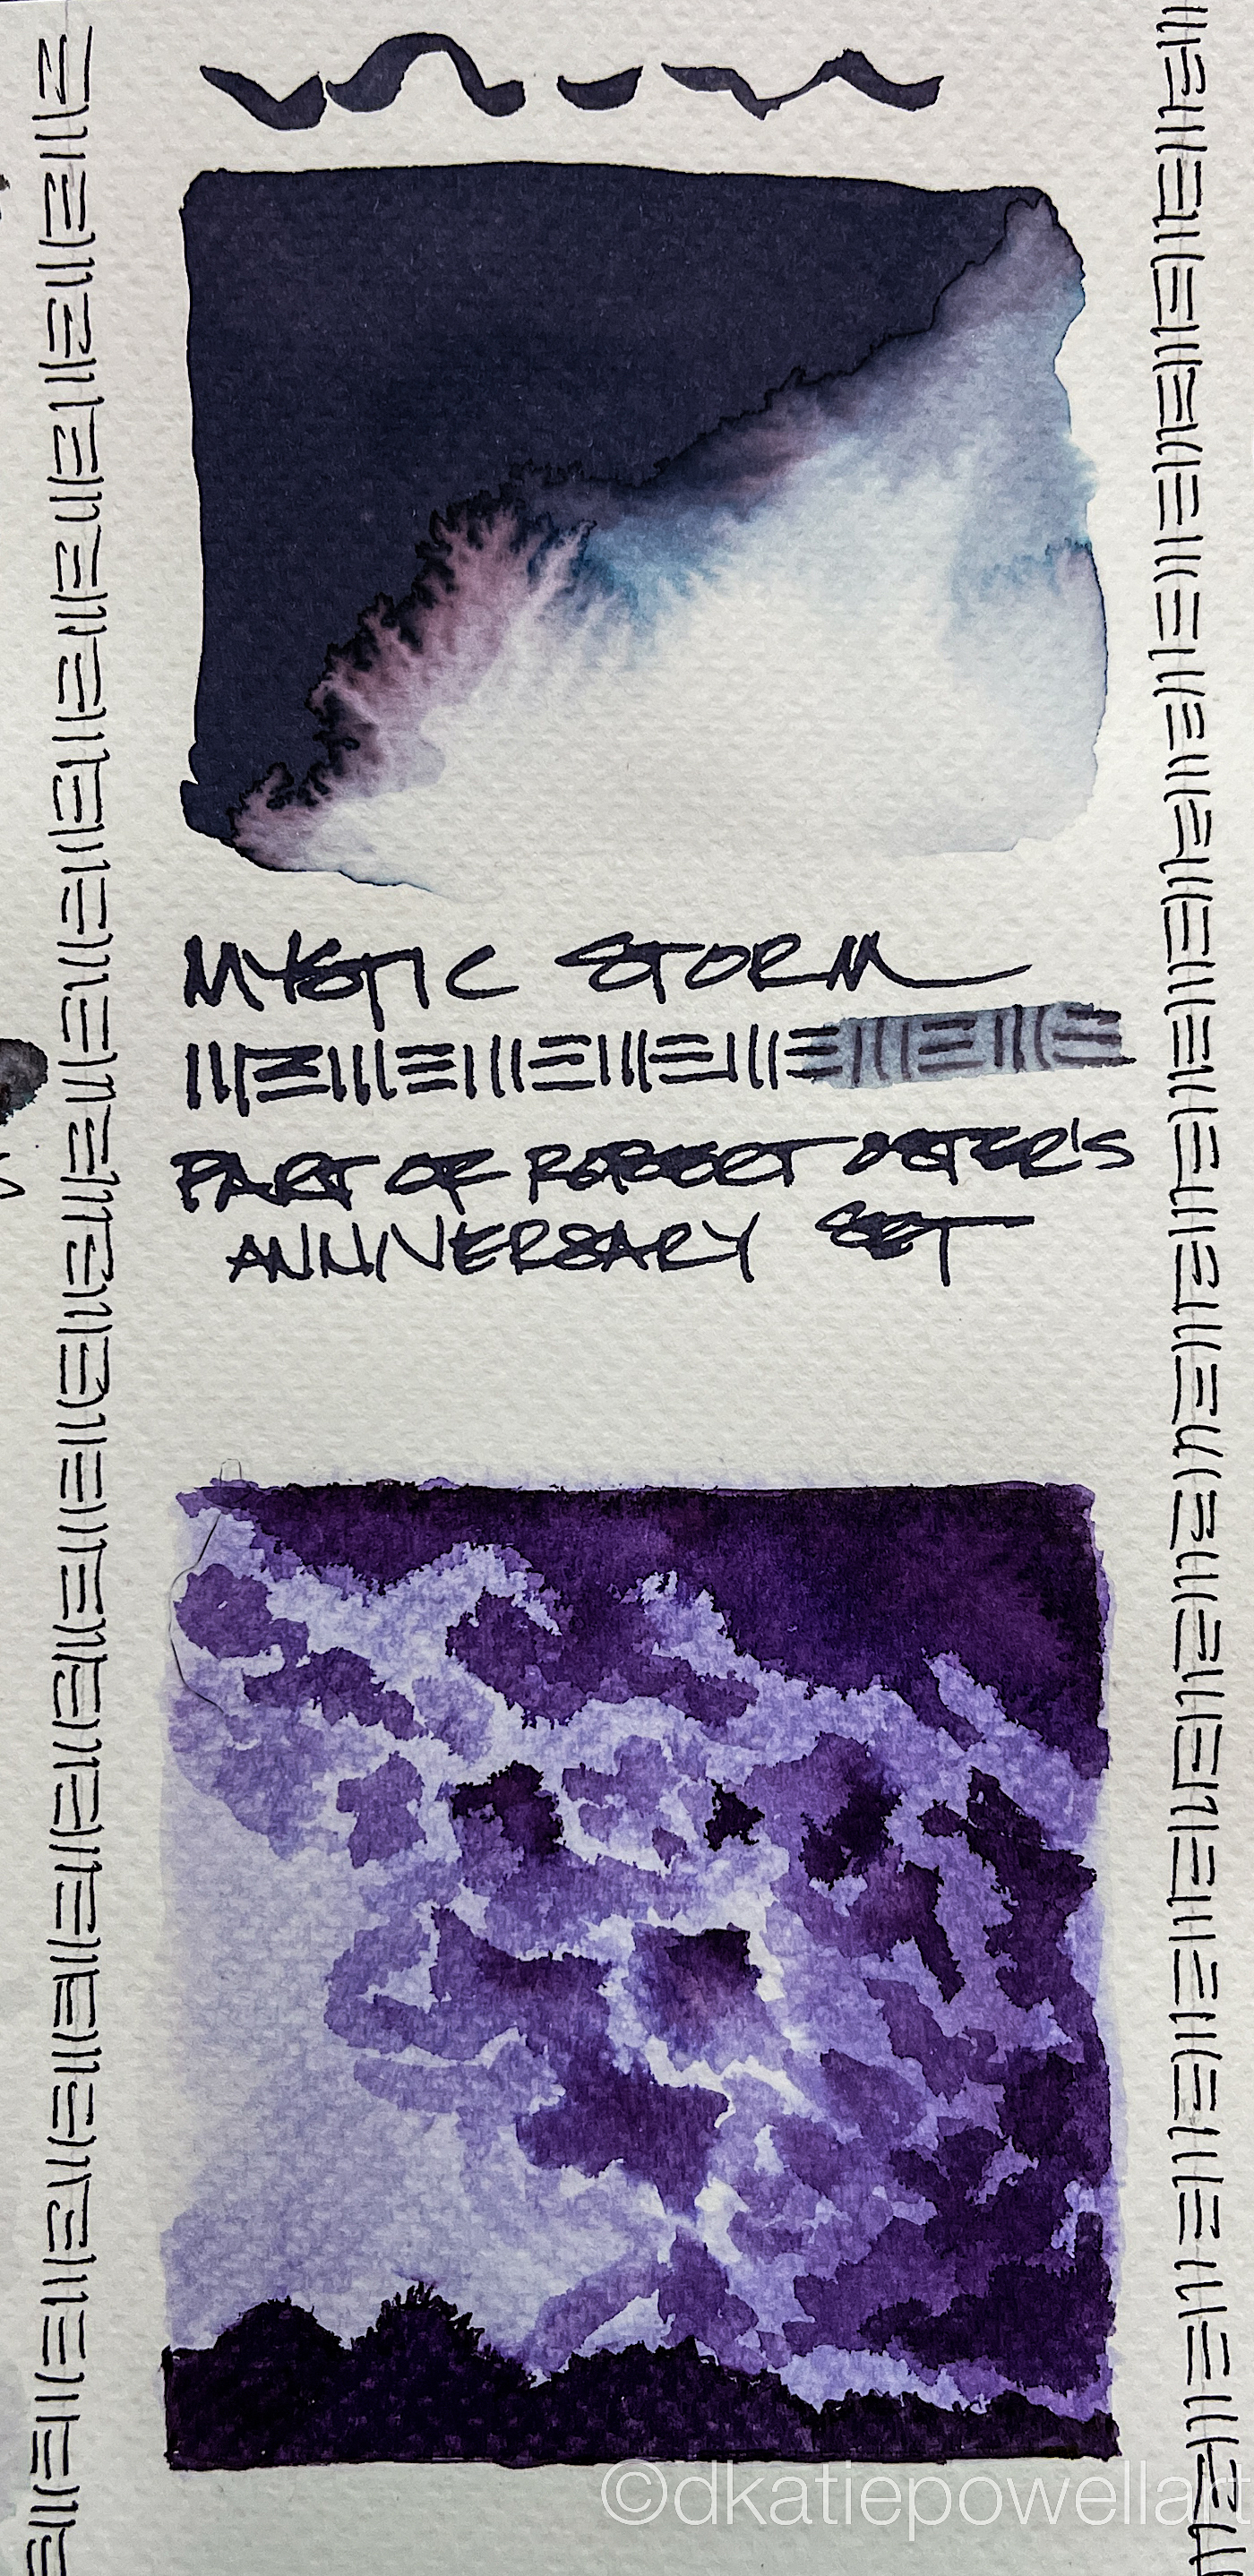 MYSTIC STORM
PART OF ROBERT OSTER'S
ANNIVERSARY SET
©dkatiepowellart